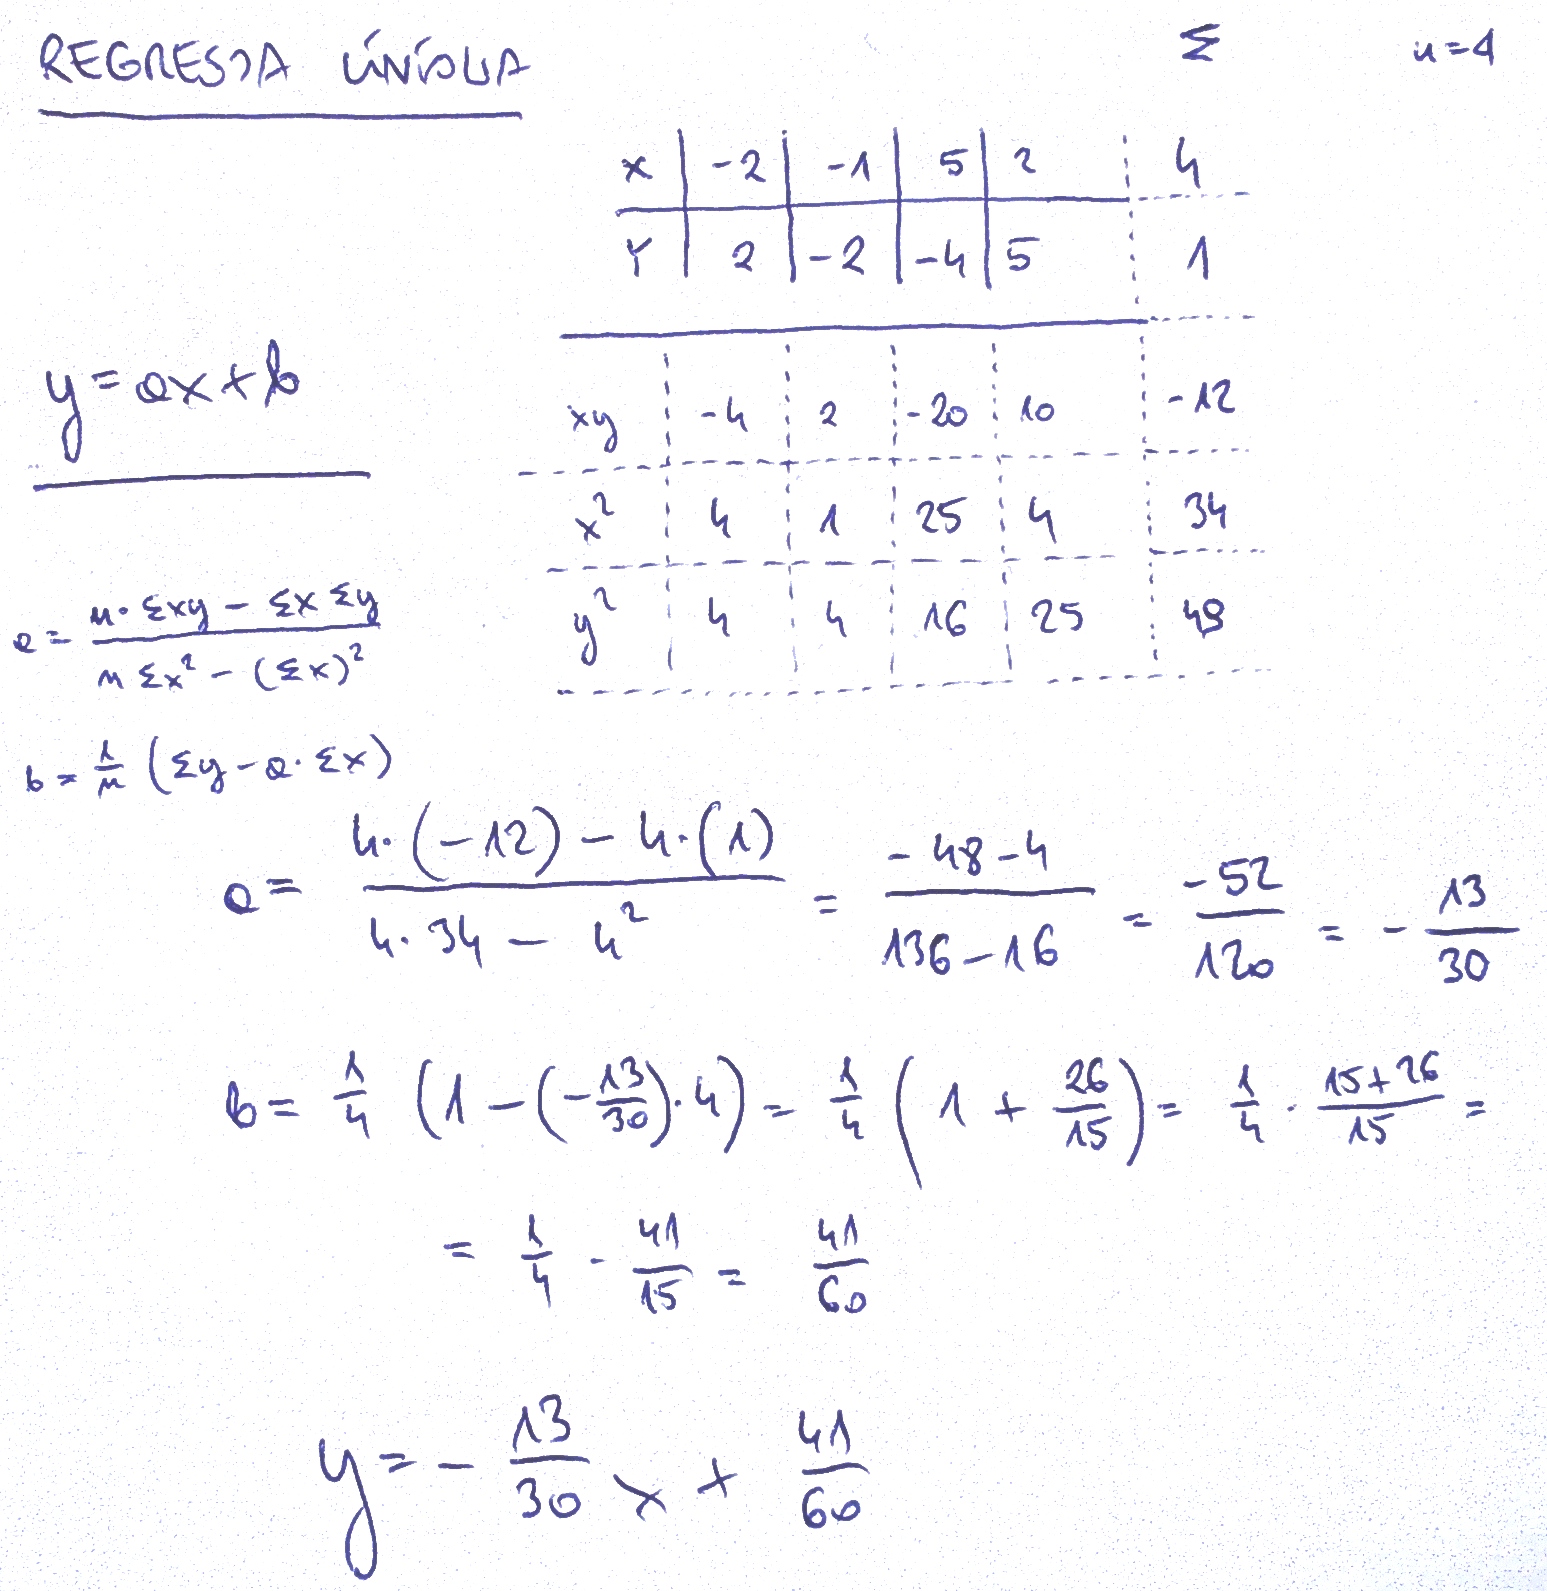 REGRESJA LINIOWA
Σ n=4
x | -2 | -1 | 5 | 2 | 4
Y | 2 | -2 | -4 | 5 | 1
y = ax + b
xy | -4 | 2 | -20 | 10 | -12
x² | 4 | 1 | 25 | 4 | 34
y² | 4 | 4 | 16 | 25 | 49
a = (n · Σxy - Σx Σy) / (n Σx² - (Σx)²)
b = 1/n (Σy - a · Σx)
a = (4 · (-12) - 4 · (1)) / (4 · 34 - 4²) = (-48 - 4) / (136 - 16) = -52/120 = - 13/30
b = 1/4 (1 - (-13/30) · 4) = 1/4 (1 + 26/15) = 1/4 · (15+26)/15 =
= 1/4 · 41/15 = 41/60
y = - 13/30 x + 41/60